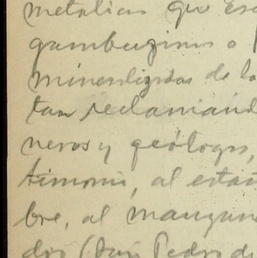 metálicas que es
gambuzinos o
mineralizadas de la
tan reclamand
neros y geólogos,
timonio, al esta
bre, al mangan
dos (San Pedro de